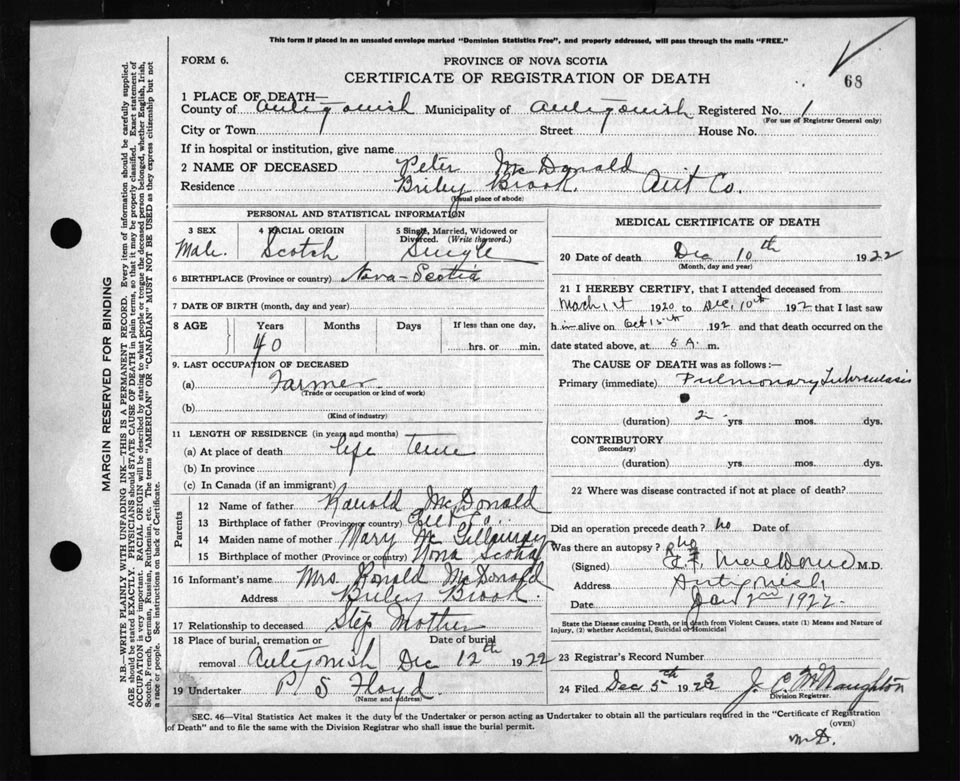 This form if placed in an unsealed envelope marked "Dominion Statistics Free", and properly addressed, will pass through the mails "FREE."
FORM 6.
PROVINCE OF NOVA SCOTIA
CERTIFICATE OF REGISTRATION OF DEATH
68
1 PLACE OF DEATH—
County of Antigonish Municipality of Antigonish Registered No. 1
(For use of Registrar General only)
City or Town Street House No.
If in hospital or institution, give name
2 NAME OF DECEASED Peter McDonald
Residence Briley Brook. Ant Co.
(Usual place of abode)
PERSONAL AND STATISTICAL INFORMATION
3 SEX 4 RACIAL ORIGIN 5 Single, Married, Widowed or
Divorced. (Write the word.)
Male. Scotch Single
6 BIRTHPLACE (Province or country) Nova-Scotia
7 DATE OF BIRTH (month, day and year)
8 AGE Years Months Days If less than one day,
40 hrs. or min.
9. LAST OCCUPATION OF DECEASED
(a) Farmer
(Trade or occupation or kind of work)
(b)
(Kind of industry)
11 LENGTH OF RESIDENCE (in years and months)
(a) At place of death life time
(b) In province
(c) In Canada (if an immigrant)
Parents
12 Name of father McDonald
13 Birthplace of father (Province or country) Co.
14 Maiden name of mother Mary McGillivray
15 Birthplace of mother (Province or country) Nova Scotia
16 Informant's name Mrs. Ronald McDonald
Address Briley Brook.
17 Relationship to deceased Step Mother
18 Place of burial, cremation or Date of burial
removal Antigonish Dec 12th 1922
19 Undertaker P S Floyd.
(Name and address)
MEDICAL CERTIFICATE OF DEATH
20 Date of death Dec 10th 1922
(Month, day and year)
21 I HEREBY CERTIFY, that I attended deceased from
March 1st 1920 to Dec. 10th 192 that I last saw
h im alive on Oct 192 and that death occurred on the
date stated above, at 5 A. m.
The CAUSE OF DEATH was as follows:—
Primary (immediate) Pulmonary Tuberculosis
(duration) 2 yrs. mos. dys.
CONTRIBUTORY
(Secondary)
(duration) yrs. mos. dys.
22 Where was disease contracted if not at place of death?
Did an operation precede death? no Date of
Was there an autopsy? no
(Signed) M.D.
Address Antigonish
Date Jan 2nd 1922-
State the Disease causing Death, or in death from Violent Causes, state (1) Means and Nature of
Injury, (2) whether Accidental, Suicidal or Homicidal
23 Registrar's Record Number
24 Filed Dec 5th J. C. McNaughton
Division Registrar.
SEC. 46—Vital Statistics Act makes it the duty of the Undertaker or person acting as Undertaker to obtain all the particulars required in the "Certificate of Registration
of Death" and to file the same with the Division Registrar who shall issue the burial permit.
(OVER)
M.D.
MARGIN RESERVED FOR BINDING
N.B.—WRITE PLAINLY WITH UNFADING INK—THIS IS A PERMANENT RECORD. Every item of information should be carefully supplied.
AGE should be stated EXACTLY. PHYSICIANS should STATE CAUSE OF DEATH in plain terms, so that it may be properly classified. Exact statement of
OCCUPATION is very important. RACIAL ORIGIN will be described by stating to what people or tongue the deceased person belonged, whether English, Irish,
Scotch, French, German, Russian, Ruthenian, etc. The terms "AMERICAN" OR "CANADIAN" MUST NOT BE USED as they express citizenship but not
a race or people. See instructions on back of Certificate.